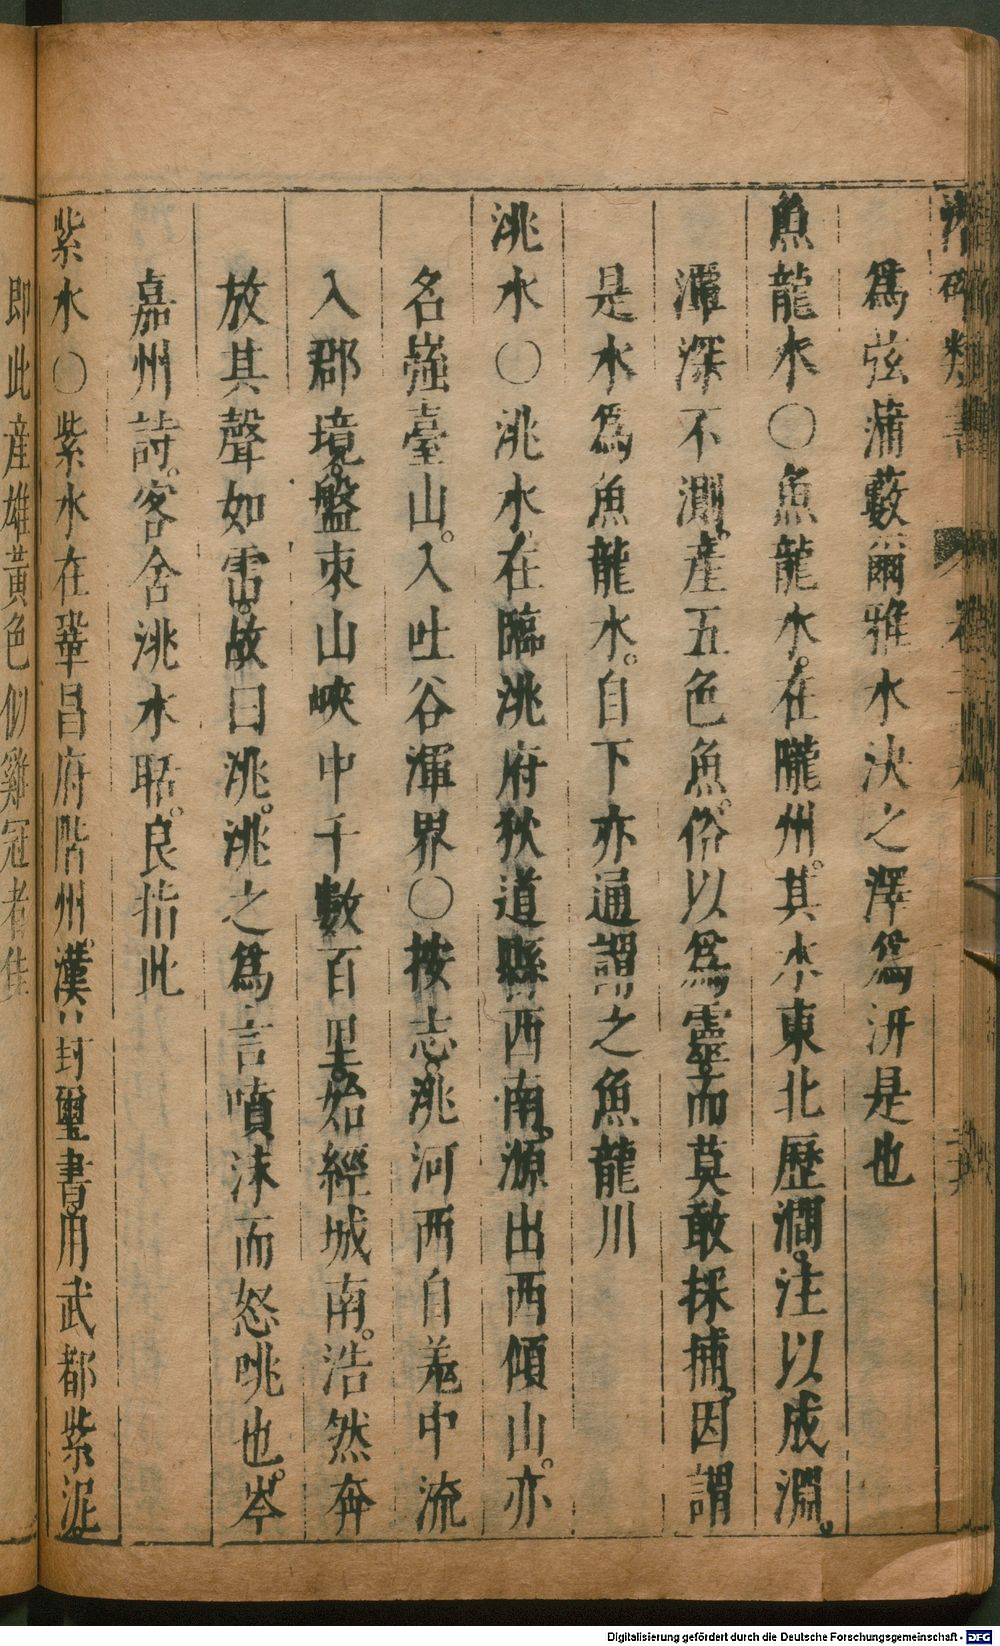 爲弦蒲藪爾雅水決之澤爲汧是也
魚龍水○魚龍水。在隴州。其水東北歷澗。注以成淵。
潭深不測。產五色魚。俗以爲靈。而莫敢採捕。因謂
是水爲魚龍水。自下亦通謂之魚龍川
洮水○洮水在臨洮府狄道縣西南。源出西傾山。亦
名嵹臺山。入吐谷渾界○按志。洮河西自羗中流
入郡境。盤束山峽中千數百里。始經城南。浩然奔
放其聲如雷。故曰洮。洮之爲言噴沫而怒咷也。岑
嘉州詩。客舍洮水聒。良指此
紫水○紫水在鞏昌府階州。漢封璽書。用武都紫泥。
即此產雄黃色似雞冠者佳
Digitalisierung gefördert durch die Deutsche Forschungsgemeinschaft - DFG